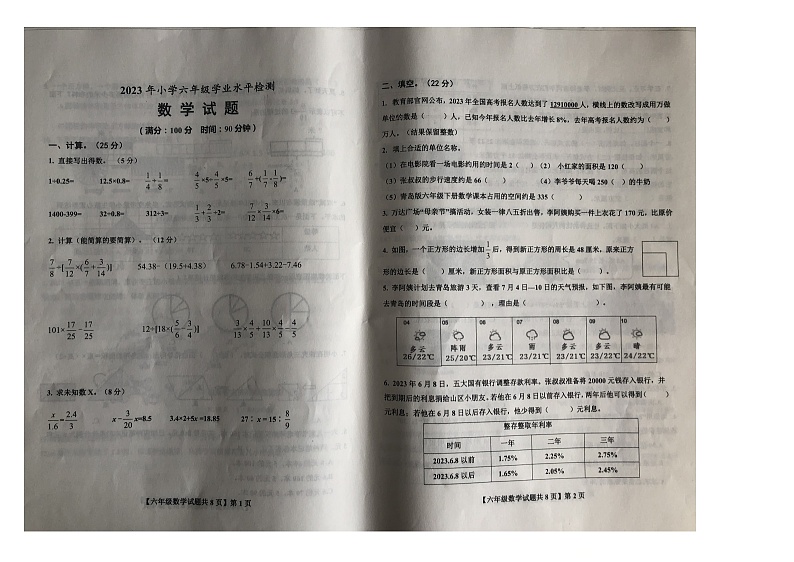 2023 年小学六年级学业水平检测
数 学 试 题
(满分:100 分 时间:90 分钟)
一、计算。(25 分)
1. 直接写出得数。(5 分)
1÷0.25= 12.5×0.8= 1/4-1/8= 4/5×5÷4/5×5= 6/7÷(1/7+1/8)=
1400-399= 32÷0.8= 312÷3= 1/3+2/3÷2= 7/12×3/14×6=
2. 计算(能简算的要简算)。(12 分)
7/8÷[7/12×(6/7+3/14)] 54.38-(19.5+4.38) 6.78-1.54+3.22-7.46
101×17/25-17/25 12÷[18×(5/6-3/4)] 3/13×4/5+10/13×4/5-4/5
3. 求未知数 X。(8 分)
x/1.6=2.4/3 x-3/20x=8.5 3.4×2+5x=18.85 27∶x=15∶8/9
【六年级数学试题共 8 页】第 1 页
二、填空。(22 分)
1. 教育部官网公布,2023 年全国高考报名人数达到了 12910000 人,横线上的数改写成用万做
单位的数是( )人,已知今年报名人数比去年增长 8%,去年高考报名人数约为( )
万人。(结果保留整数)
2. 填上合适的单位名称。
(1)在电影院看一场电影约用的时间是 2( ) (2)小红家的面积是 120( )
(3)张叔叔的步行速度约是 66( ) (4)李爷爷每天喝 250( )的牛奶
(5)青岛版六年级下册数学课本占用的空间约是 335( )
3. 万达广场“母亲节”搞活动,女装一律八五折出售,李阿姨购买一件上衣花了 170 元,比原价
便宜( )元。
4. 如图,一个正方形的边长增加1/3后,得到新正方形的周长是 48 厘米,原来正方
形的边长是( )厘米,新正方形面积与原正方形面积比是( )。
5. 李阿姨计划去青岛旅游 3 天,查看 7 月 4 日—10 日的天气预报,如下图,李阿姨最有可能
去青岛的时间段是( ),理由是( )。
04 05 06 07 08 09 10
多云 阵雨 多云 雨 多云 多云 晴
26/22℃ 25/20℃ 23/21℃ 23/21℃ 23/21℃ 23/22℃ 24/22℃
6. 2023 年 6 月 8 日,五大国有银行调整存款利率。张叔叔准备将 20000 元钱存入银行,并
把到期后的利息捐给山区小朋友。若他在 6 月 8 日以前存入银行,两年后他可以得到( )
元利息;若他在 6 月 8 日以后存入银行,他少得到( )元利息。
整存整取年利率
时间 一年 二年 三年
2023.6.8 以前 1.75% 2.25% 2.75%
2023.6.8 以后 1.65% 2.05% 2.45%
【六年级数学试题共 8 页】第 2 页